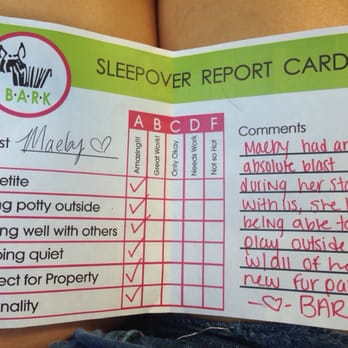 B·A·R·K
SLEEPOVER REPORT CARD
st Maeby
A B C D F
Amazing!!!
Great Work!
Only Okay
Needs Work
Not so Hot
etite
ng potty outside
ng well with others
ping quiet
ect for Property
nality
Comments
Maeby had an
absolute blast
during her sta
with us, she l
being able to
play outside
w/all of he
new fur pa
-♡- BAR